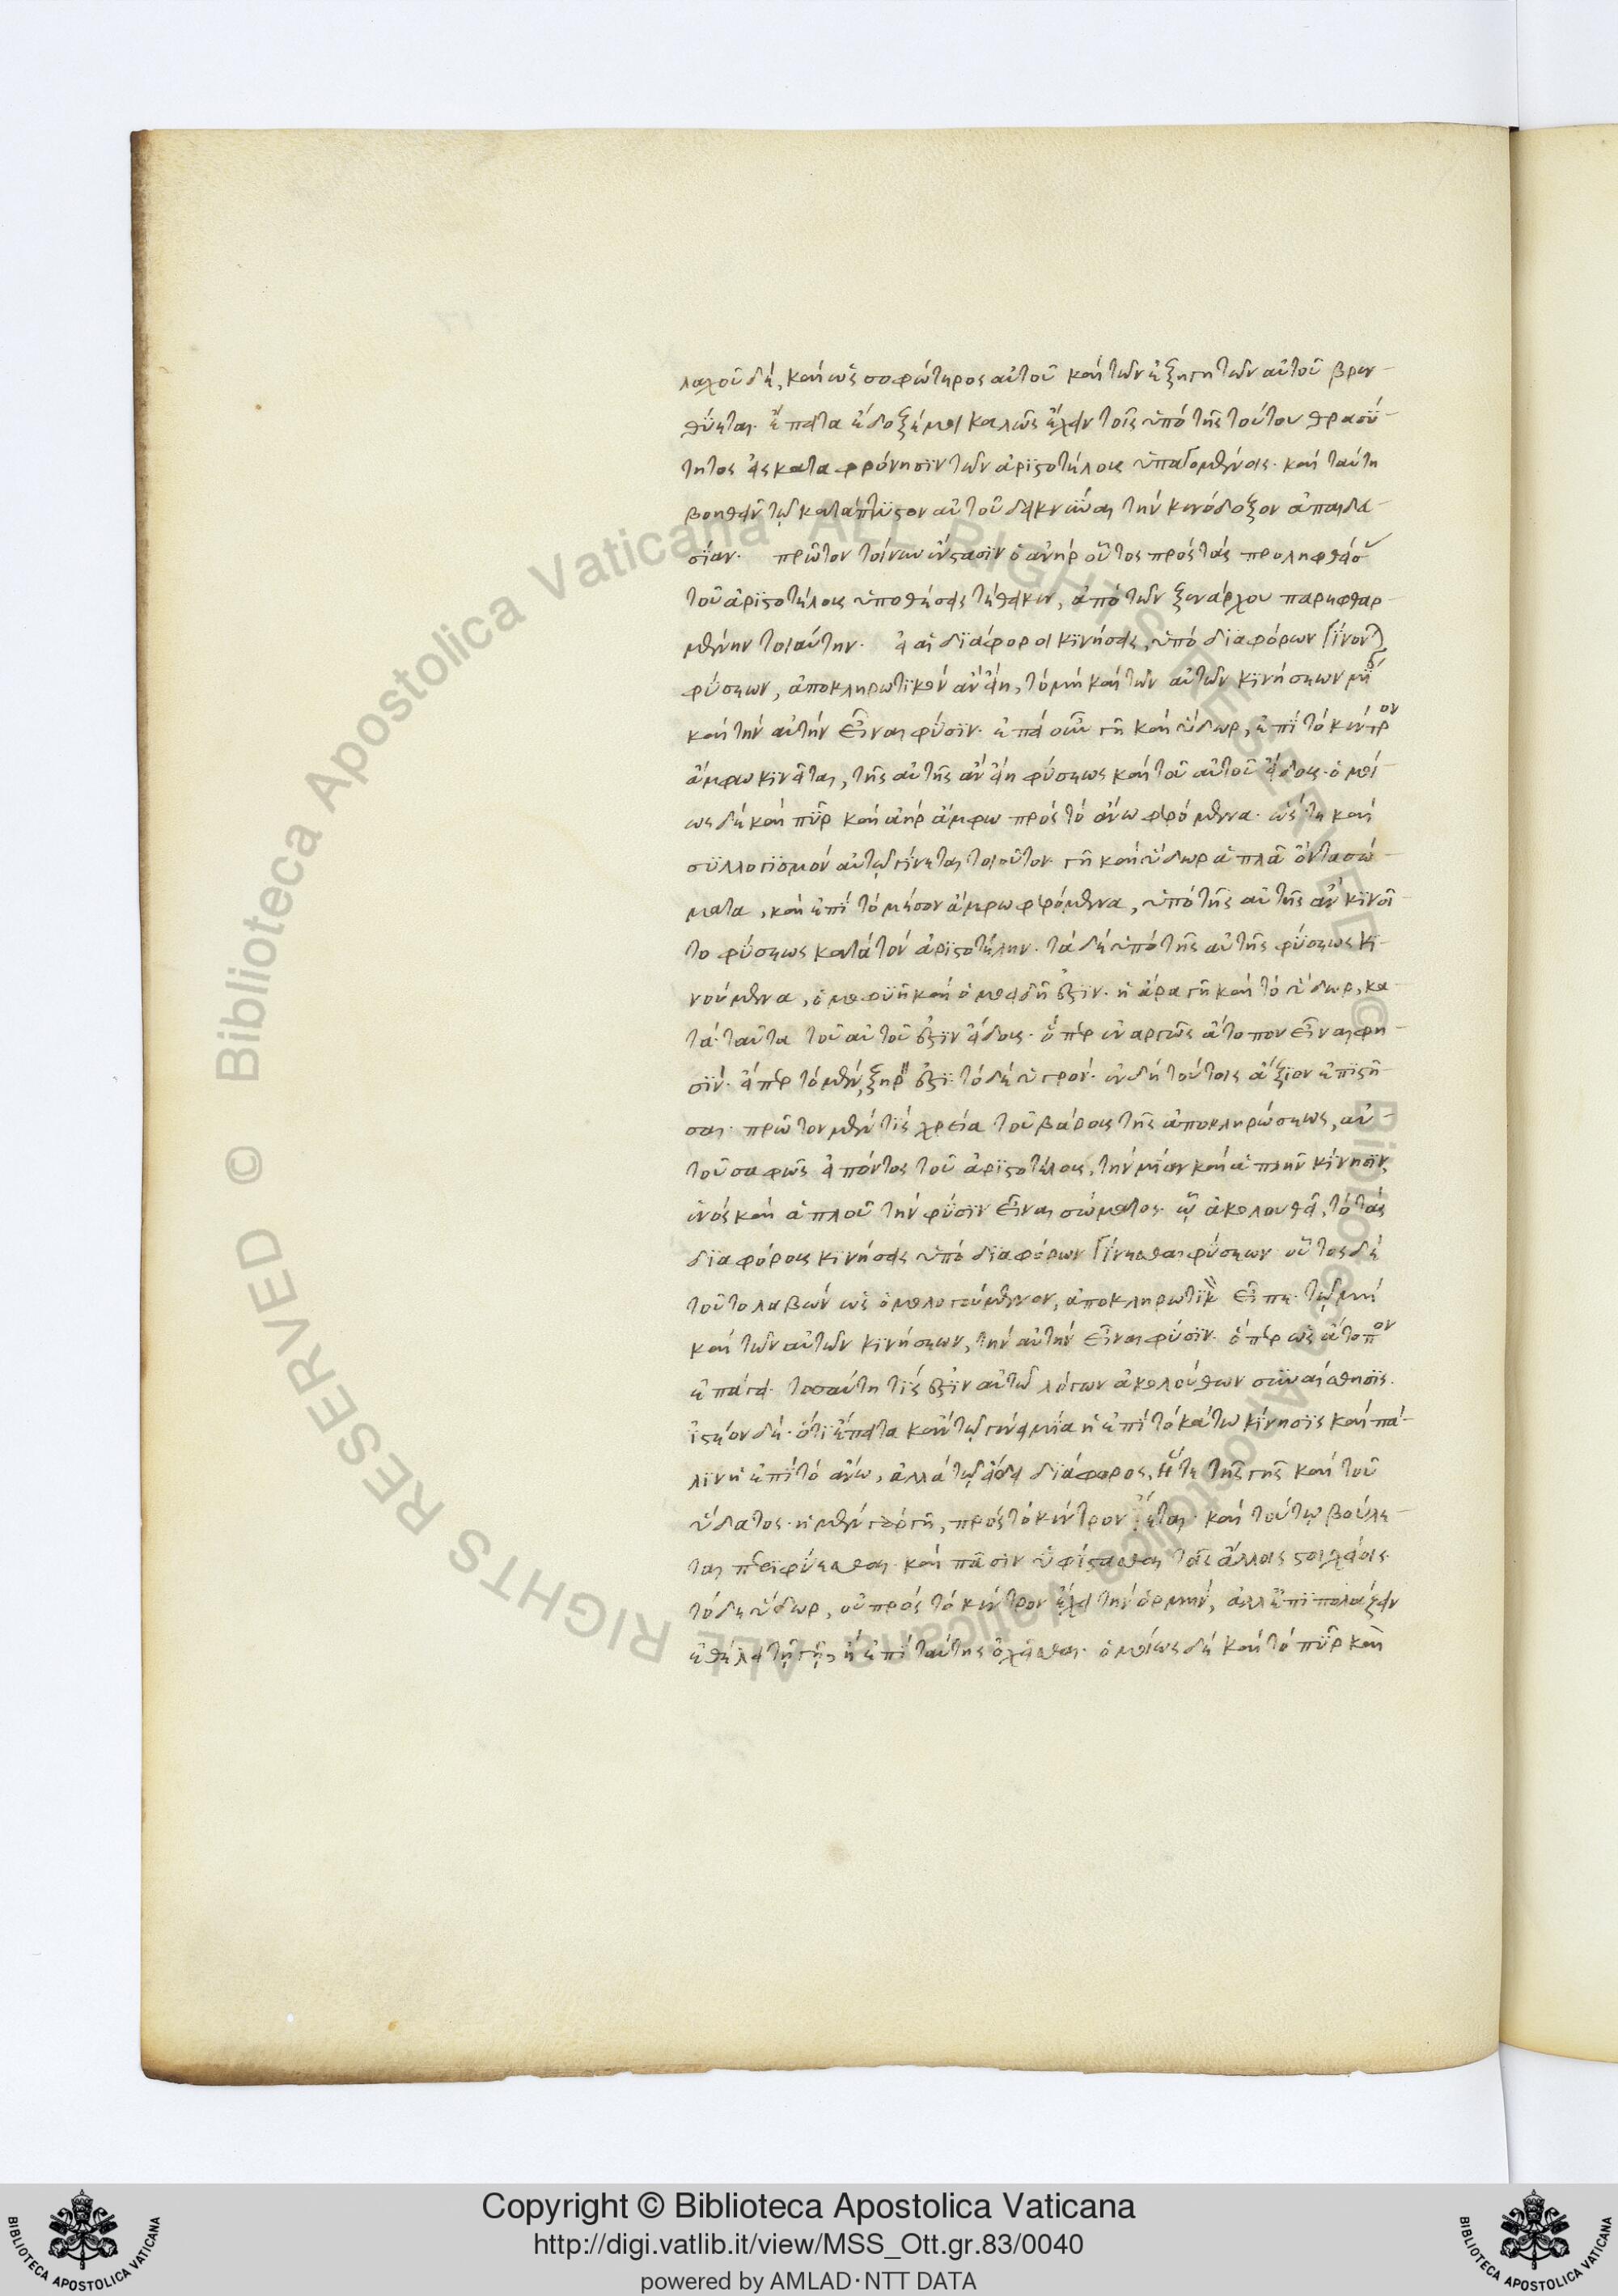 λαχοῦ δὲ, καὶ ὡς σοφώτερος αὐτοῦ καὶ τῶν ἐξηγητῶν αὐτοῦ βρεν-
θύεται. ἔπειτα ἔδοξέ μοι καλῶς ἔχειν τοῖς ὑπὸ τῆς τούτου θρασύ-
τητος εἰς καταφρόνησϊν τῶν ἀριστοτέλους ὑπαγομένοις. καὶ ταύτη
βοηθεῖν τῷ κατάπτυστον αὐτοῦ δεικνῦναι τὴν κενόδοξον ἀπαιδευ-
σίαν. πρῶτον τοίνυν ἔνστασιν ὁ ἀνὴρ οὗτος πρὸς τὰς προληφθείσ
τοῦ ἀριστοτέλους ὑποθέσεις τέθεικεν, ἀπὸ τῶν ξενάρχου παρεφθαρ-
μένην τοιαύτην. εἰ αἱ διάφοροι κϊνήσεις, ὑπὸ διαφόρων γίνοντ
φύσεων, ἀποκληρωτϊκὸν ἂν εἴη, τὸ μὴ καὶ τῶν αὐτῶν κϊνήσεων μὴ
καὶ τὴν αὐτὴν εἶναι φύσϊν. ἐπεὶ οὖν γῆ καὶ ὕδωρ, ἐπὶ τὸ κέντρον
ἄμφω κϊνεῖται, τῆς αὐτῆς ἂν εἴη φύσεως καὶ τοῦ αὐτοῦ εἴδους. ὁμοί-
ως δὲ καὶ πῦρ καὶ ἀὴρ ἄμφω πρὸς τὸ ἄνω φερόμενα. ὥς τε καὶ
συλλογϊσμὸν αὐτῷ γίνεται τοιοῦτον. γῆ καὶ ὕδωρ ἁπλᾶ ὄντα σώ-
ματα, καὶ ἐπὶ τὸ μέσον ἄμφω φερόμενα, ὑπὸ τῆς αὐτῆς ἂν κϊνοῖ-
το φύσεως κατὰ τὸν ἀριστοτέλην. τὰ δὲ ὑπὸ τῆς αὐτῆς φύσεως κϊ-
νούμενα, ὁμοφυῆ καὶ ὁμοειδῆ ἐστϊν. ἡ ἄρα γῆ καὶ τὸ ὕδωρ, κα-
τὰ ταῦτα τοῦ αὐτοῦ ἐστϊν εἴδους. ὅπερ ἐναργῶς ἄτοπον εἶναι φη-
σϊν. εἴπερ τὸ μὲν, ξηρόν ἐστϊ. τὸ δὲ ὑγρόν. ἐν δὴ τούτοις ἄξιον ἐπϊστῆ-
σαι. πρῶτον μὲν τίς χρεία τοῦ βάρους τῆς ἀποκληρώσεως, αὐ-
τοῦ σαφῶς εἰπόντος τοῦ ἀριστοτέλους, τὴν μίαν καὶ ἁπλῆν κίνησϊν
ἑνὸς καὶ ἁπλοῦ τὴν φύσϊν εἶναι σώματος. ᾧ ἀκολουθεῖ, τὸ τὰς
διαφόρους κϊνήσεις ὑπὸ διαφόρων γίνεσθαι φύσεων. οὗτος δὲ
τοῦτο λαβὼν ὡς ὁμολογούμενον, ἀποκληρωτϊκ εἶπε. τῷ μὴ
καὶ τῶν αὐτῶν κϊνήσεων, τὴν αὐτὴν εἶναι φύσϊν. ὅπερ ὡς ἄτοπον
ἐπάγει. τοσαύτη τίς ἐστϊν αὐτῷ λόγων ἀκολούθων συναίσθησϊς.
ἰστέον δὲ. ὅτϊ ἔπειτα κἂν τῷ γένει μία ἡ ἐπὶ τὸ κάτω κίνησϊς καὶ πά-
λϊν ἡ ἐπὶ τὸ ἄνω, ἀλλὰ τῷ εἴδει διάφορος, ἥ τε τῆς γῆς καὶ τοῦ
ὕδατος. ἡ μὲν γὰρ γῆ, πρὸς τὸ κέντρον ἵεται. καὶ τούτῳ βούλε-
ται περιφύεσθαι. καὶ πᾶσιν ὑφίστασθαι τοῖς ἄλλοις στοιχείοις.
τὸ δὲ ὕδωρ, οὐ πρὸς τὸ κέντρον ἔχει τὴν ὁρμὴν, ἀλλ' ἐπιπολάζειν
ἐθέλει τῇ γῇ, ἢ ἐπὶ ταύτης ὀχεῖσθαι. ὁμοίως δὲ καὶ τὸ πῦρ καὶ
Copyright © Biblioteca Apostolica Vaticana
http://digi.vatlib.it/view/MSS_Ott.gr.83/0040
powered by AMLAD·NTT DATA